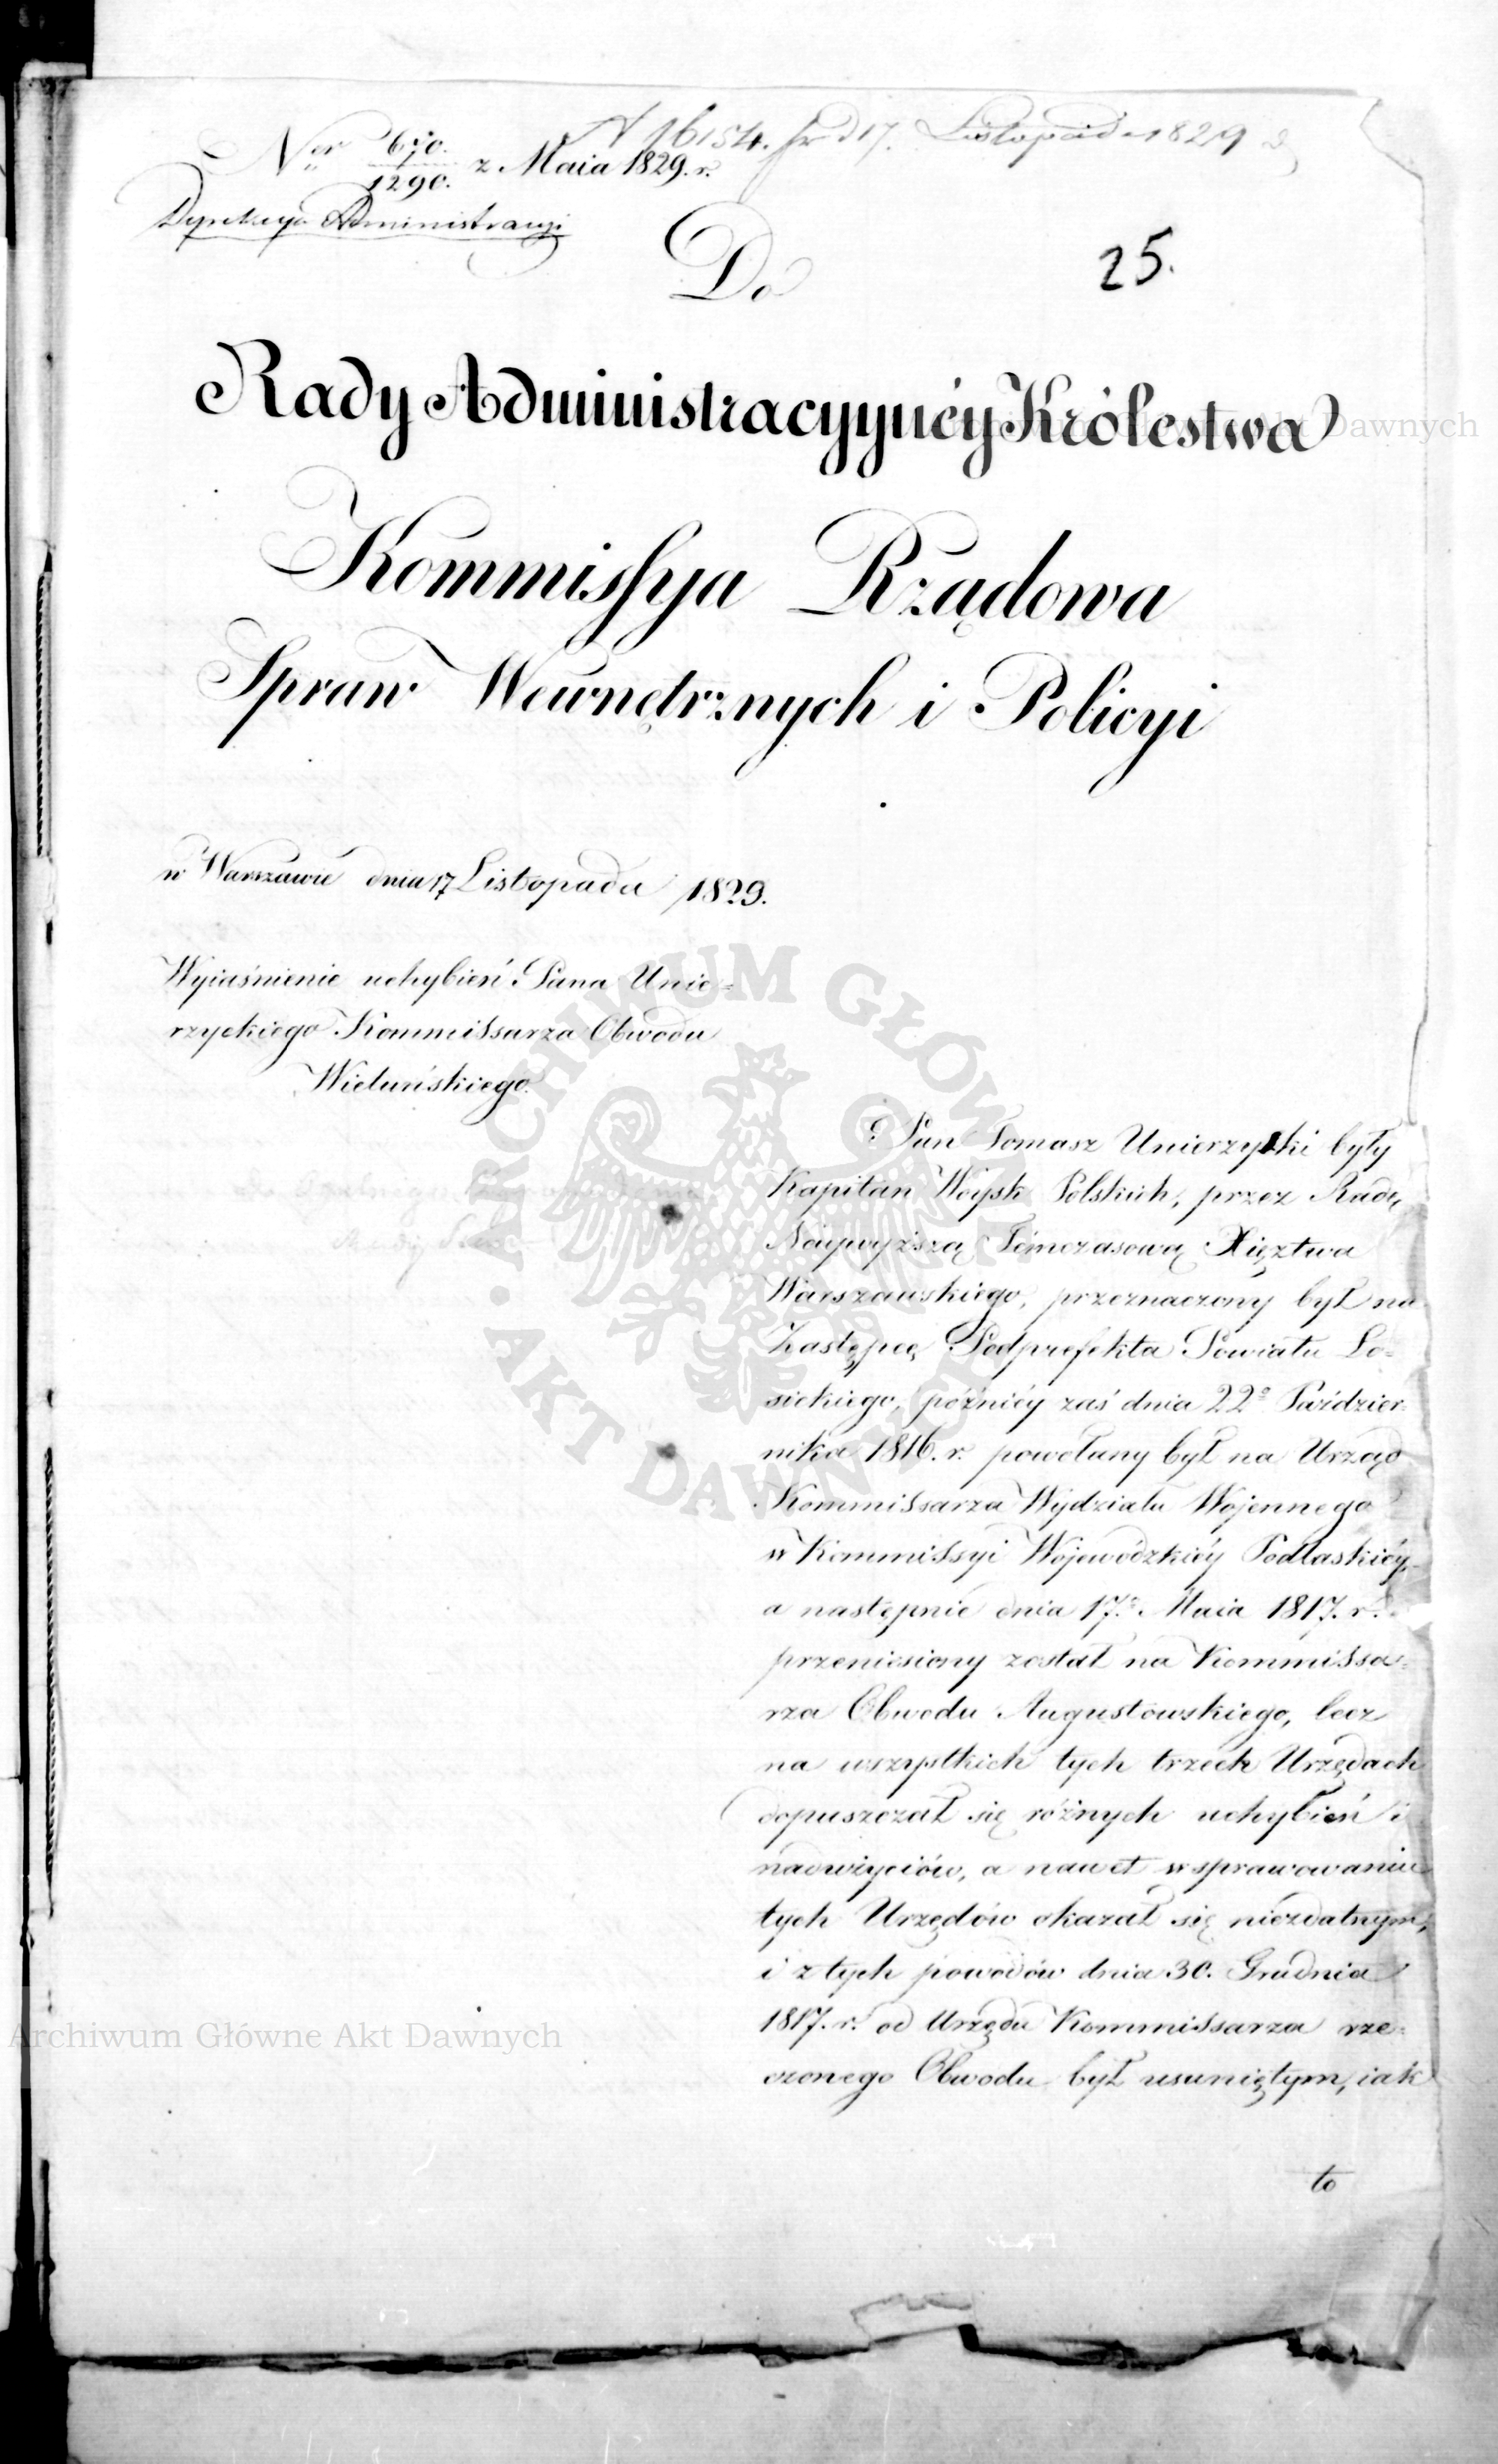 N 16154. pr d 17. Listopada 1829
Ner 670./1290. z Maia 1829. r.
Dyrekcya Administracyi
Do
25.
Rady Administracyynéy Królestwa
Kommissya Rządowa
Spraw Wewnętrznych i Policyi
w Warszawie dnia 17 Listopada 1829.
Wyiaśnienie uchybień Pana Unie=
rzyckiego Kommissarza Obwodu
Wieluńskiego.
Pan Tomasz Unierzycki były
Kapitan Woysk Polskich, przez Radę
Naywyższą Témczasową Xięztwa
Warszawskiego, przeznaczony był na
Zastępcę Podprefekta Powiatu Ło=
sickiego, późniéy zaś dnia 22º Paździer=
nika 1816. r. powołany był na Urząd
Kommissarza Wydziału Wojennego
w Kommissyi Wojewódzkiéy Podlaskiéy,
a następnie dnia 17º Maia 1817. r.
przeniesiony został na Kommissa=
rza Obwodu Augustowskiego, lecz
na wszystkich tych trzech Urzędach
dopuszczał się różnych uchybień i
nadużyciów, a nawet w sprawowaniu
tych Urzędów okazał się niezdatnym,
i z tych powodów dnia 30. Grudnia
1817. r. od Urzędu Kommissarza rze=
czonego Obwodu był usuniętym, iak
to
Archiwum Główne Akt Dawnych
ARCHIWUM GŁÓWNE AKT DAWNYCH